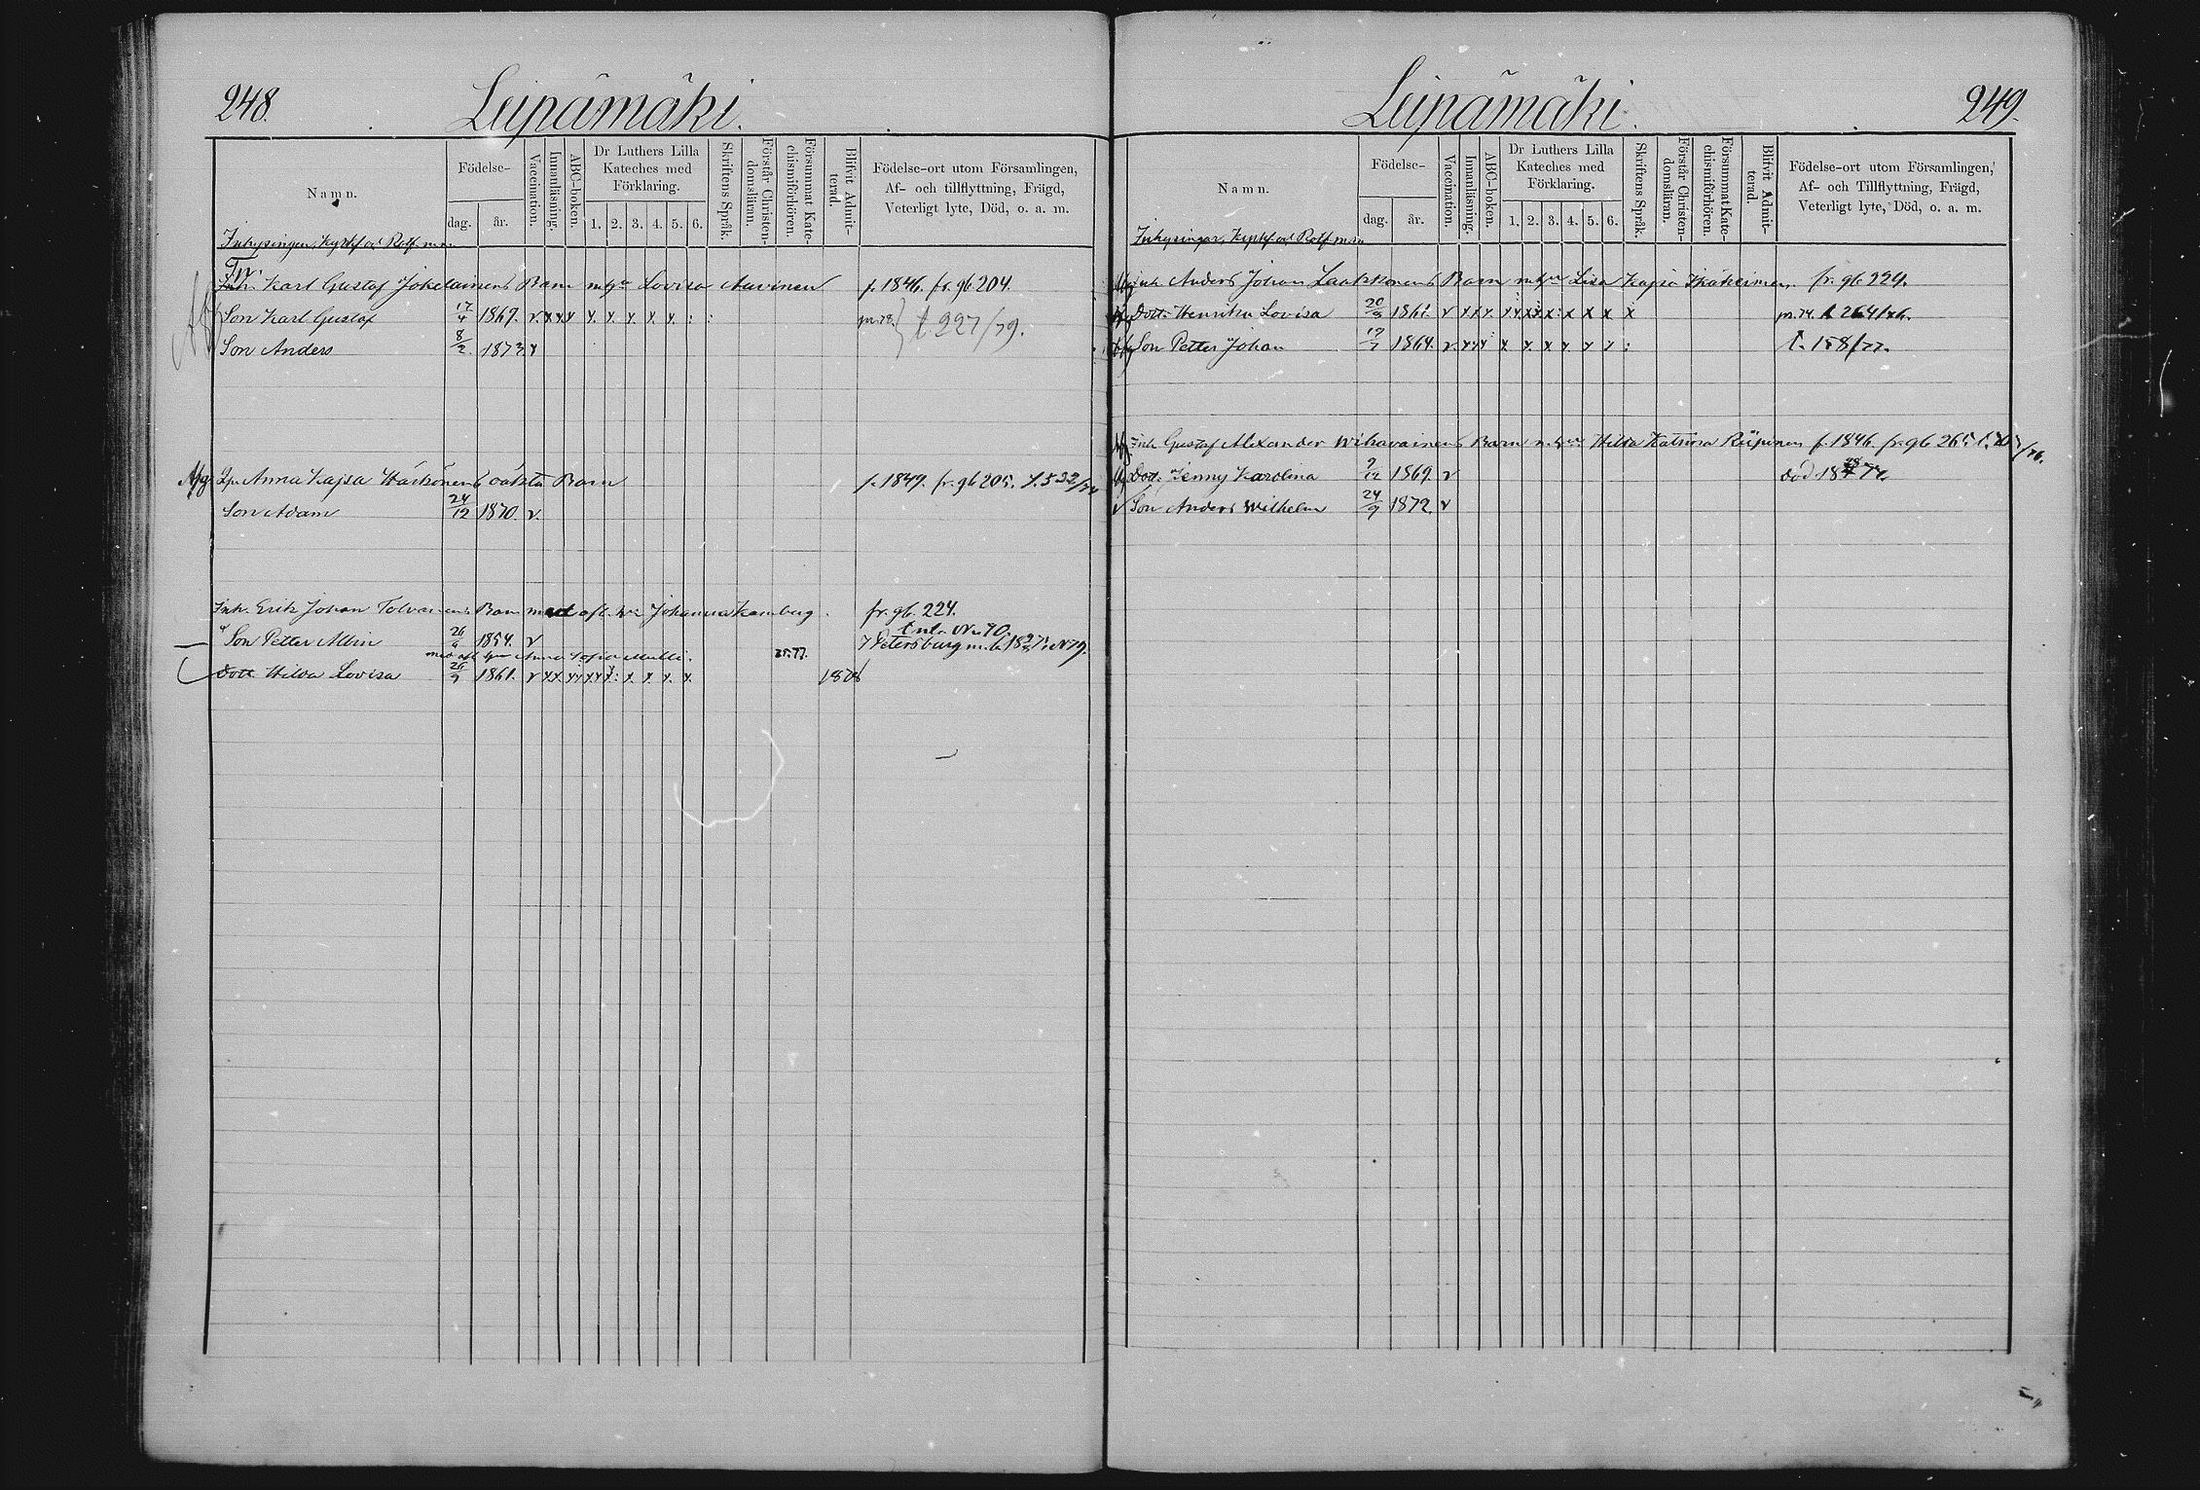 248.
Leipämäki.
Namn.
Födelse-
dag.
år.
Vaccination.
Innanläsning.
ABC-boken.
Dr Luthers Lilla
Kateches med
Förklaring.
1. 2. 3. 4. 5. 6.
Skriftens Språk.
Förstår Christen-
domsläran.
Försummat Kate-
chismiförhören.
Blifvit Admit-
terad.
Födelse-ort utom Församlingen,
Af- och tillflyttning, Frägd,
Veterligt lyte, Död, o. a. m.
Karl Gustaf Jokelainens Barn Lovisa Auvinen f. 1846. fr. gb 204.
Son Karl Gustaf 17/4 1867. v. x x x x. x. x. x. x. x. : :
t 227/79.
Son Anders 8/2. 1873 v
Afg Anna Kajsa Härkönens oäkta Barn f. 1849. fr. gb 205.
Son Adam 24/12 1870. v.
Inh. Erik Johan Tolvanens Barn med afl. Johanna Kamberg. fr. gb. 224.
Son Petter Albin 1854. v
Petersburg
Anna Sofia
Dott. Hilda Lovisa 26/9 1861. v
249.
Leipämäki.
Namn.
Födelse-
dag.
år.
Vaccination.
Innanläsning.
ABC-boken.
Dr Luthers Lilla
Kateches med
Förklaring.
1. 2. 3. 4. 5. 6.
Skriftens Språk.
Förstår Christen-
domsläran.
Försummat Kate-
chismiförhören.
Blifvit Admit-
terad.
Födelse-ort utom Församlingen,
Af- och Tillflyttning, Frägd,
Veterligt lyte, Död, o. a. m.
Inh. Anders Johan Laakkonens Barn Lisa Kajsa fr. gb 224.
Dott. Henrika Lovisa 20/9 1861. v
t 264/76.
Son Petter Johan 1864. v
t. 158/77.
Inh. Gustaf Alexander Wihavainens Barn Hilda Katrina Riipinen f. 1846. fr. gb 265.
Dott. Jenny Karolina 9/12 1869. v död
v Son Anders Wilhelm 24/9 1872. v